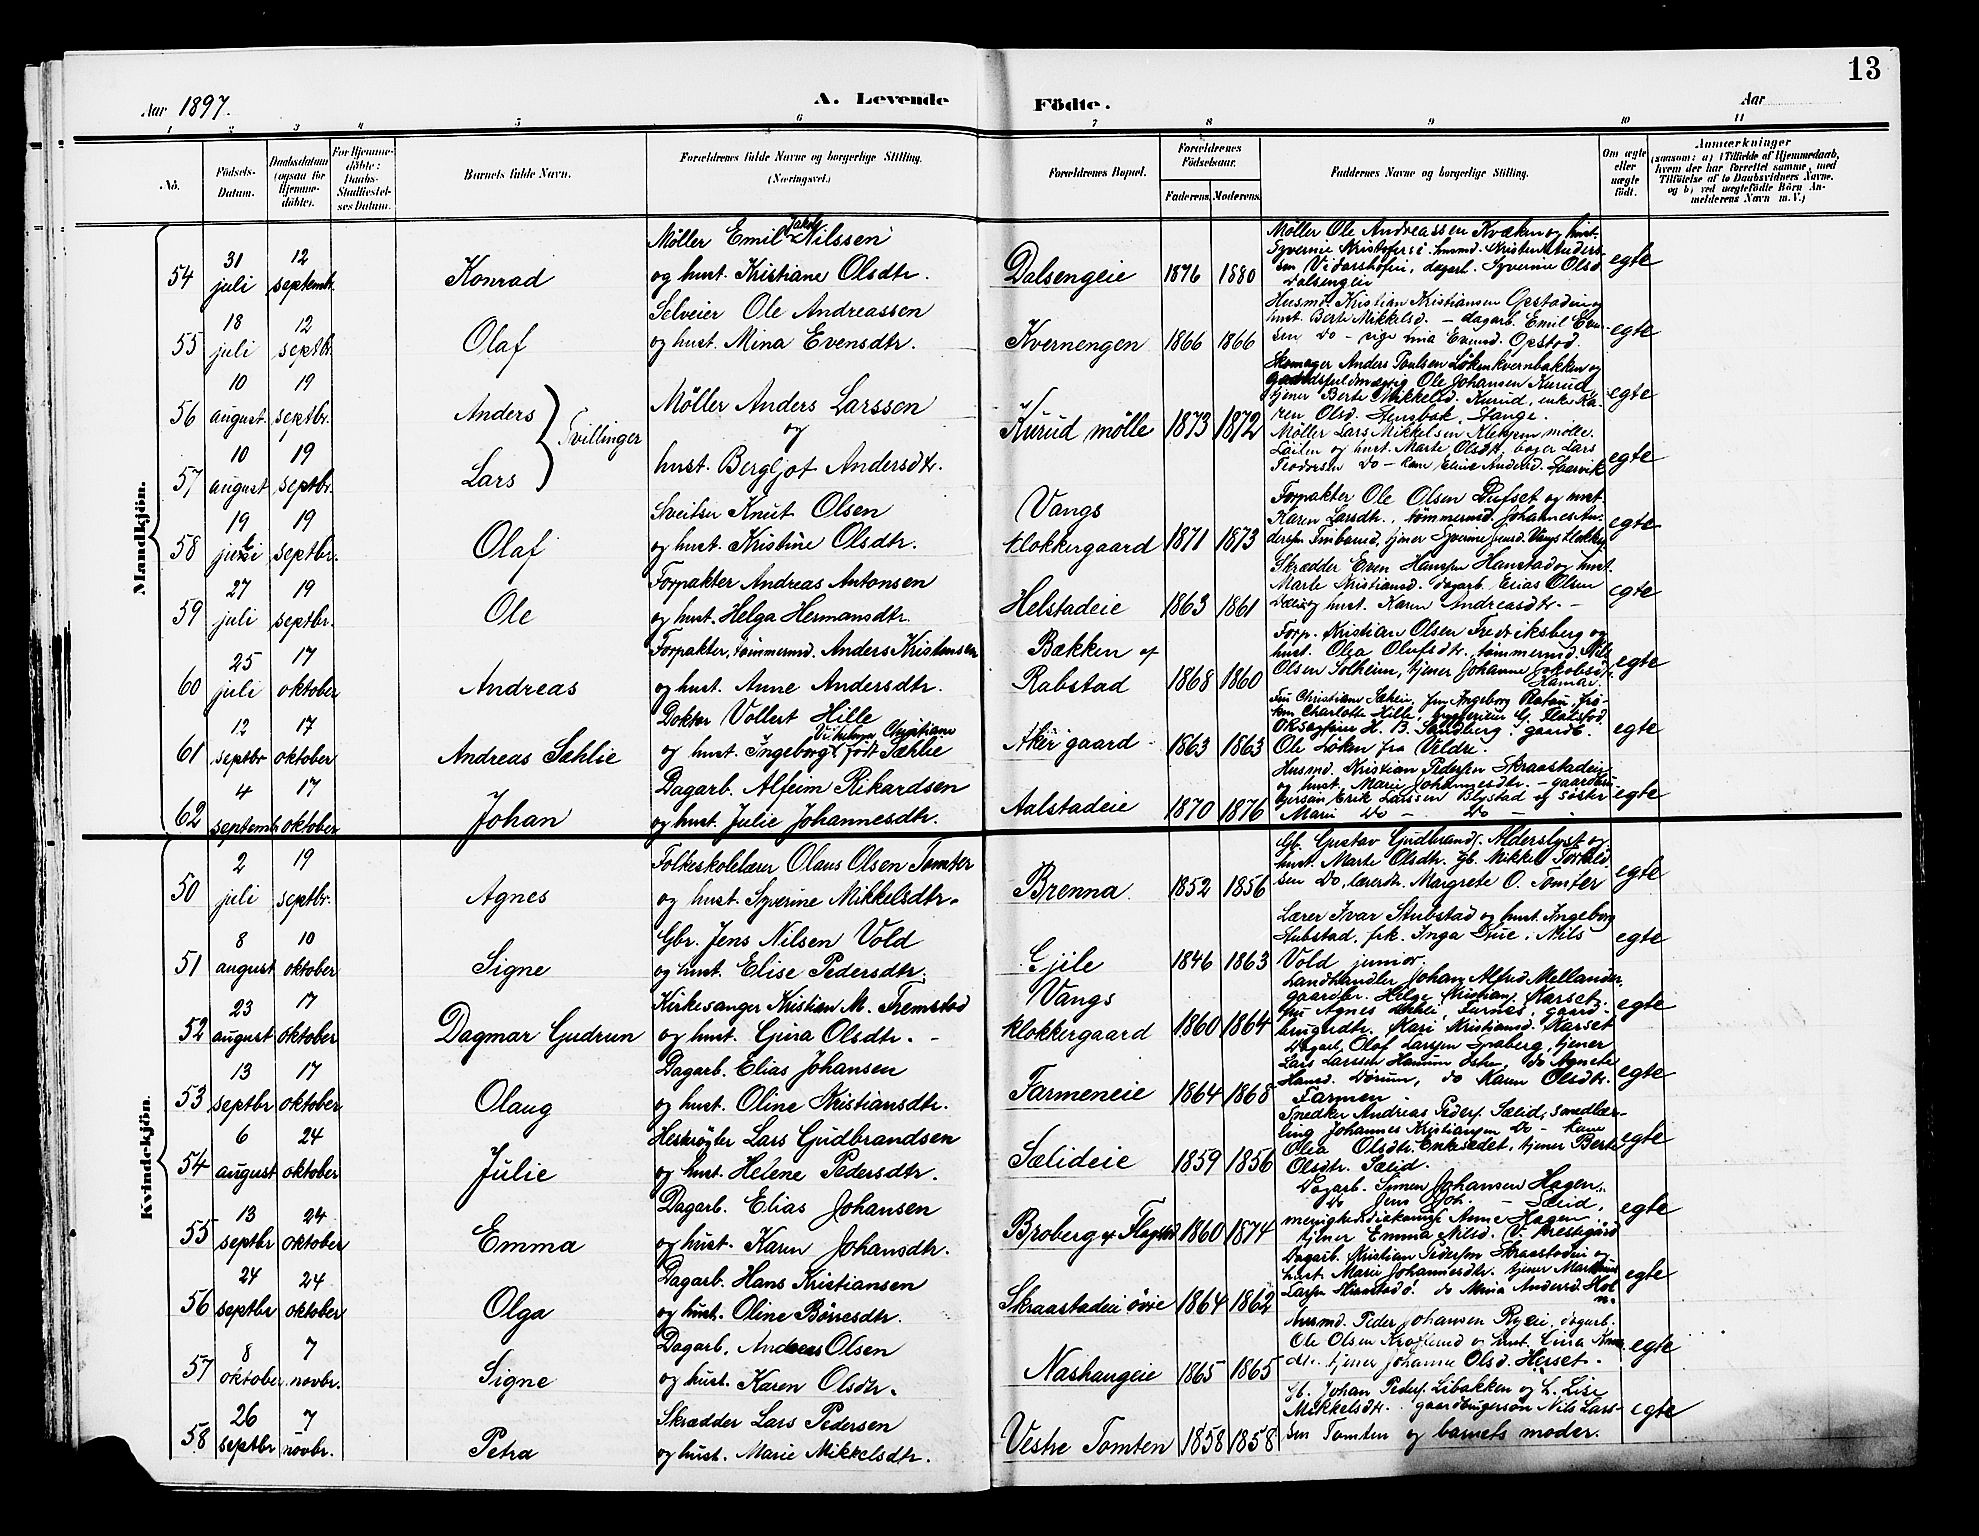 13
Aar 1897.
A. Levende Födte.
Aar
1 2 3 4 5 6 7 8 9 10 11
No.
Födsels-Datum.
Daabsdatum (ogsaa for Hjemmedöbte).
For Hjemmedöbte: Daabs-Stadfæstelses Datum.
Barnets fulde Navn.
Forældrenes fulde Navne og borgerlige Stilling. (Næringsvei.)
Forældrenes Bopæl.
Forældrenes Födselsaar.
Faderens. Moderens.
Faddernes Navne og borgerlige Stilling.
Om ægte eller uægte födt.
Anmærkninger
(saasom: a) i Tilfælde af Hjemmedaab, hvem der har forrettet samme, med Tilföielse af to Daabsvidners Navne, og b) ved uægtefödte Börn Anmelderens Navn m. V.)
Mandkjön.
54 31 juli 12 septembr. Konrad Møller Emil Jakob Nilssen og hust. Kristiane Olsdtr. Dalsengeie 1876 1880 Møller Ole Andreassen Kvækn og hust. Syverine Dalsengeie egte
55 18 juli 12 septbr. Olaf Selveier Ole Andreassen og hust. Mina Evensdtr. Kvernengen 1866 1866 Husmd. Kristian Kristiansen Opstadeie og hust. Berte Mikkelsd. – dagarb. Emil Evensen Do – pige Evensd. Opstad. egte
56 10 august 19 septbr. Anders
Tvillinger
Møller Anders Larssen og hust. Bergljot Andersdtr. Kurud mølle 1873 1872 Skomager Anders Poulsen Løkenkvernbakken og Ole Johansen Kurud, tjener Berte Mikkelsd. Kurud, enke Karen Olsd. Stange. egte
57 10 august 19 septbr. Lars Møller Lars Mikkelsen mølle. Løiten og hust. Marte Olsdtr, Lars egte
58 19 juli 19 septbr. Olaf Sveitser Knut Olsen og hust. Kristine Olsdtr. Vangs klokkergaard 1871 1873 Forpakter Ole Olsen Dufset og hust. Karen Larsdtr., tømmermd. Johannes Andersen tjener Syverine Vangs klokkg. egte
59 27 juli 19 septbr. Ole Forpakter Andreas Antonsen og hust. Helga Hermansdtr. Helstadeie 1863 1861 Skrædder Even Hansen Hanstad og hust. Marte Kristiansd. dagarb. Elias Olsen hust. Karen Andreasdtr. – egte
60 25 juli 17 oktober Andreas Forpakter, tømmermd. Anders Kristensen og hust. Anne Andersdtr. Bækken af Rabstad 1868 1860 Forp. Kristian Olsen Fredriksberg og hust. Olea Olufsdtr. tømmermd. Nils Olsen Solheim, tjener Johanne Jakobsdtr. Hamar. egte
61 12 septbr 17 oktober Andreas Sæhlie Doktor Vollert Hille og hust. Ingeborg Vilhelmine Christiane født Sæhlie Aker gaard 1863 1863 Fru Christiane Sæhlie, fru Ingeborg frøken Charlotte Hille, H. B. Sandberg, gaardb. Ole Løken fra Veldre. egte
62 4 septembr 17 oktober Johan Dagarb. Alfeim Rikardsen og hust. Julie Johannesdtr. Aalstadeie 1870 1876 Husmd. Kristian Pedersen Skraastadeie og hust. Marie Johannesdtr. – gaardbrugersøn Erik Larssen Blystad og søster Marie Do – Do – egte
Kvindekjön.
50 2 juli 19 septbr. Agnes Folkeskolelærer Olaus Olsen Tomter og hust. Syverine Mikkelsdtr. Brenna. 1852 1856 Gb. Gustav Gudbrands. Alderslyst og hust. Marte Olsdtr. Gb. Mikkel Torkildsen Do, lærerdtr. Margrete O. Tomter egte
51 8 august 10 oktober Signe Gbr. Jens Nilsen Vold og hust. Elise Pedersdtr. Gjile 1846 1863 Lærer Ivar Stubstad og hust. Ingeborg Stubstad, frk. Inga Due, Nils Vold junior. egte
52 23 august 17 oktober Dagmar Gudrun Kirkesanger Kristian M. Fremstad og hust. Gina Olsdtr. – Vangs klokkergaard 1860 1864 Landhandler Johan Alfred Mellander, gaardbr. Helge Kristians. Karset, fru Agnes Furnes, gaardbrugerdtr. Kari Kristiansd. Karset egte
53 13 septbr 17 oktober Olaug Dagarb. Elias Johansen og hust. Oline Kristiansdtr. Farmeneie 1864 1868 Dagarb. Olof Larssen Spaberg, tjener Lars Larssen do Agnete Hansd. Dørum, do Karen Olsdtr. Farmen. egte
54 6 august 24 oktober Julie Hesterøgter Lars Gudbrandsen og hust. Helene Pedersdtr. Sælideie 1859 1856 Snedker Andreas Peders. Sælid, smedlærling Johannes Kristiansen Do – kone Olea Olsdtr. Enkesædet, tjener Berte Olsdtr. Sælid. egte
55 13 septbr 24 oktober Emma Dagarb. Elias Johansen og hust. Karen Johansdtr. Broberg af Flagstad 1860 1874 Dagarb. Simen Johansen Hagen, Do Jens Joh. – Sælid, menighedsdiakonisse Anne Hagen, tjener Emma Nilsd. V. Prestegård egte
56 24 septbr 24 oktober Olga Dagarb. Hans Kristiansen og hust. Oline Børresdtr. Skraastadeie øvre 1864 1862 Dagarb. Kristian Pedersen Skraastadeie og hust. Marie Johannesdtr. tjener Martinus Larssen Skraastad, do Mina Andersd. egte
57 8 oktober 7 novbr. Signe Dagarb. Andreas Olsen og hust. Karen Olsdtr. Nashaugeie 1865 1865 Husmd. Peder Johansen Ryeie, dagarb. Ole Olsen Kroglund og hust. Gina tjener Johanne Olsd. Herset. egte
58 26 septbr 7 novbr. Petra Skrædder Lars Pedersen og hust. Marie Mikkelsdtr. Vestre Tomten 1858 1858 Gb. Johan Peders. Libakken og h. Lise Mikkelsdtr. gaardbrugersøn Nils Larssen Tomten og barnets moder. egte